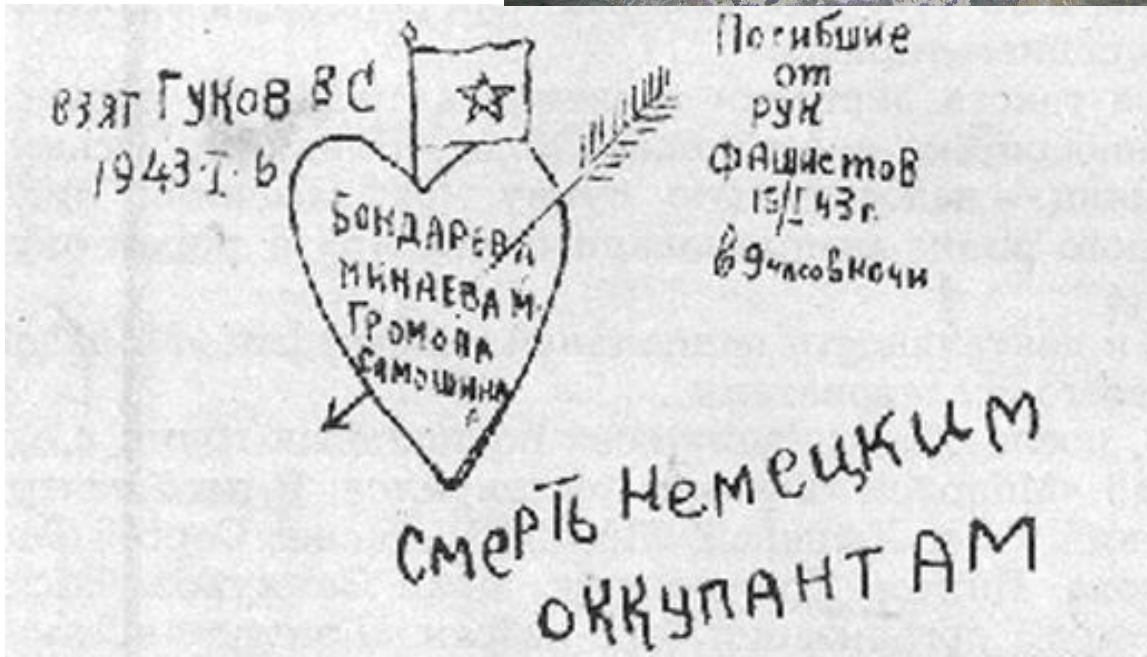 ВЗЯТ ГУКОВ В С
1943·I· 6
БОНДАРЕВА
МИНАЕВА М.
ГРОМОВА
САМОШИНА
Погибшие
от
РУК
ФАШИСТОВ
15/I 43г.
в 9 часов ночи
Смерть Немецким
ОККУПАНТАМ